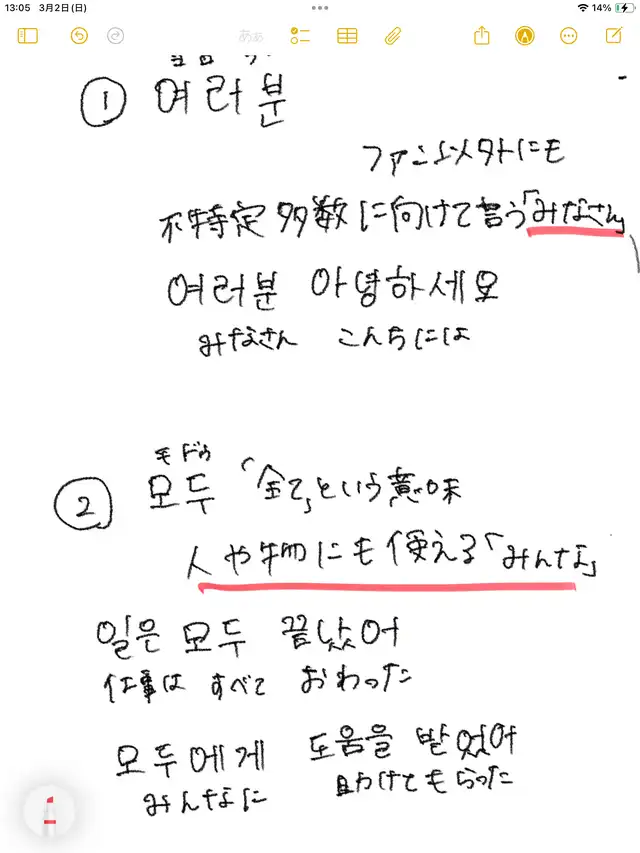 13:05 3月2日(日)
14%
あぁ
① 여러분
ファン以外にも
不特定多数に向けて言う「みなさん」
여러분 안녕하세요
みなさん こんちにには
モドゥ
② 모두 「全て」という意味
人や物にも使える「みんな」
일은 모두 끝났어
仕事は すべて おわった
모두에게 도움을 받았어
みんなに 助けてもらった